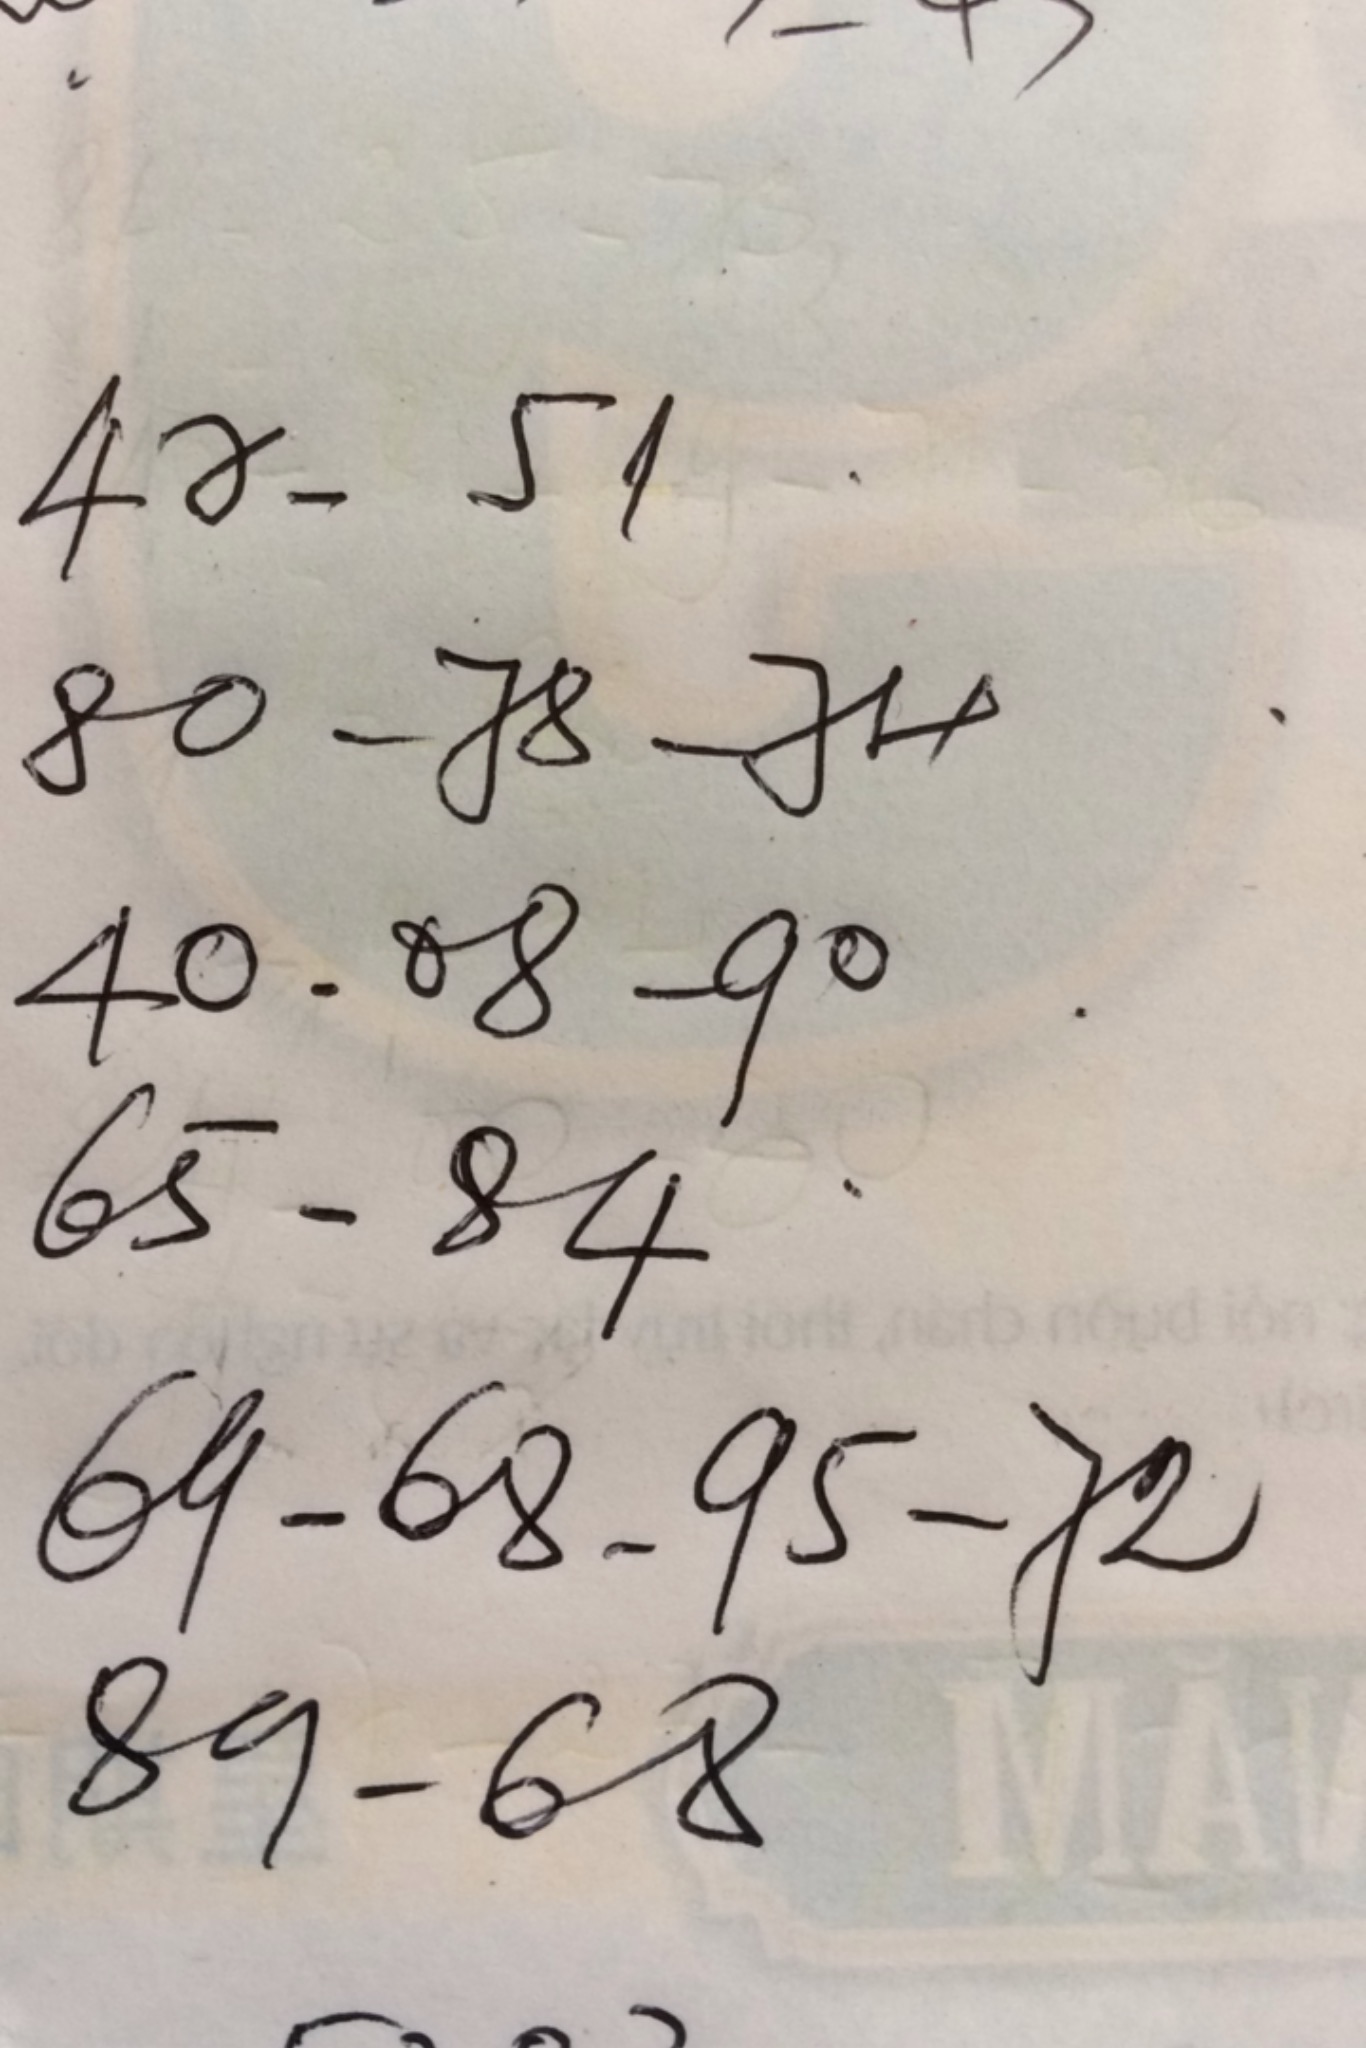 48 - 51
80 - 78 - 74
40 - 08 - 90
65 - 84
69 - 68 - 95 - 72
89 - 68